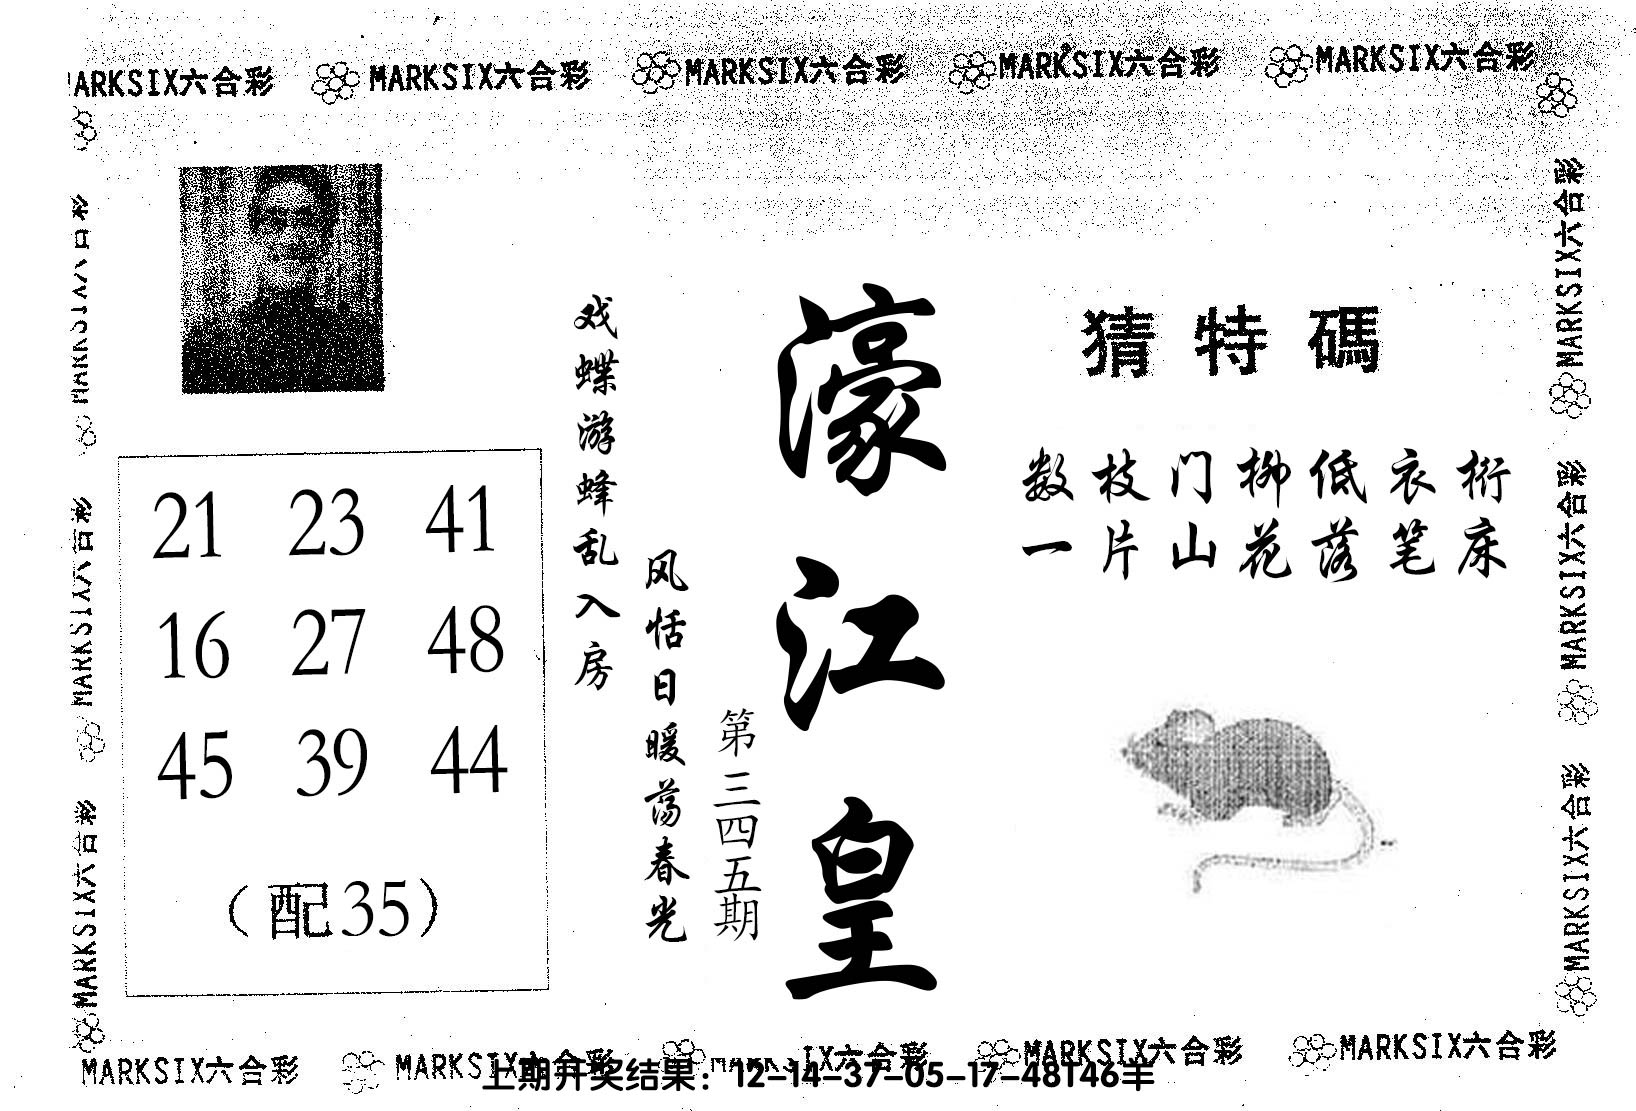 MARKSIX六合彩 MARKSIX六合彩 MARKSIX六合彩 MARKSIX六合彩 MARKSIX六合彩
MARKSIX六合彩
MARKSIX六合彩
MARKSIX六合彩
猜特碼
数枝门柳低衣桁
一片山花落笔床
濠江皇
第三四五期
风恬日暖荡春光
戏蝶游蜂乱入房
21 23 41
16 27 48
45 39 44
（配35）
MARKSIX六合彩
MARKSIX六合彩
MARKSIX六合彩
MARKSIX六合彩 MARKSIX六合彩 MARKSIX六合彩 MARKSIX六合彩 MARKSIX六合彩
上期开奖结果：12-14-37-05-17-48T46羊